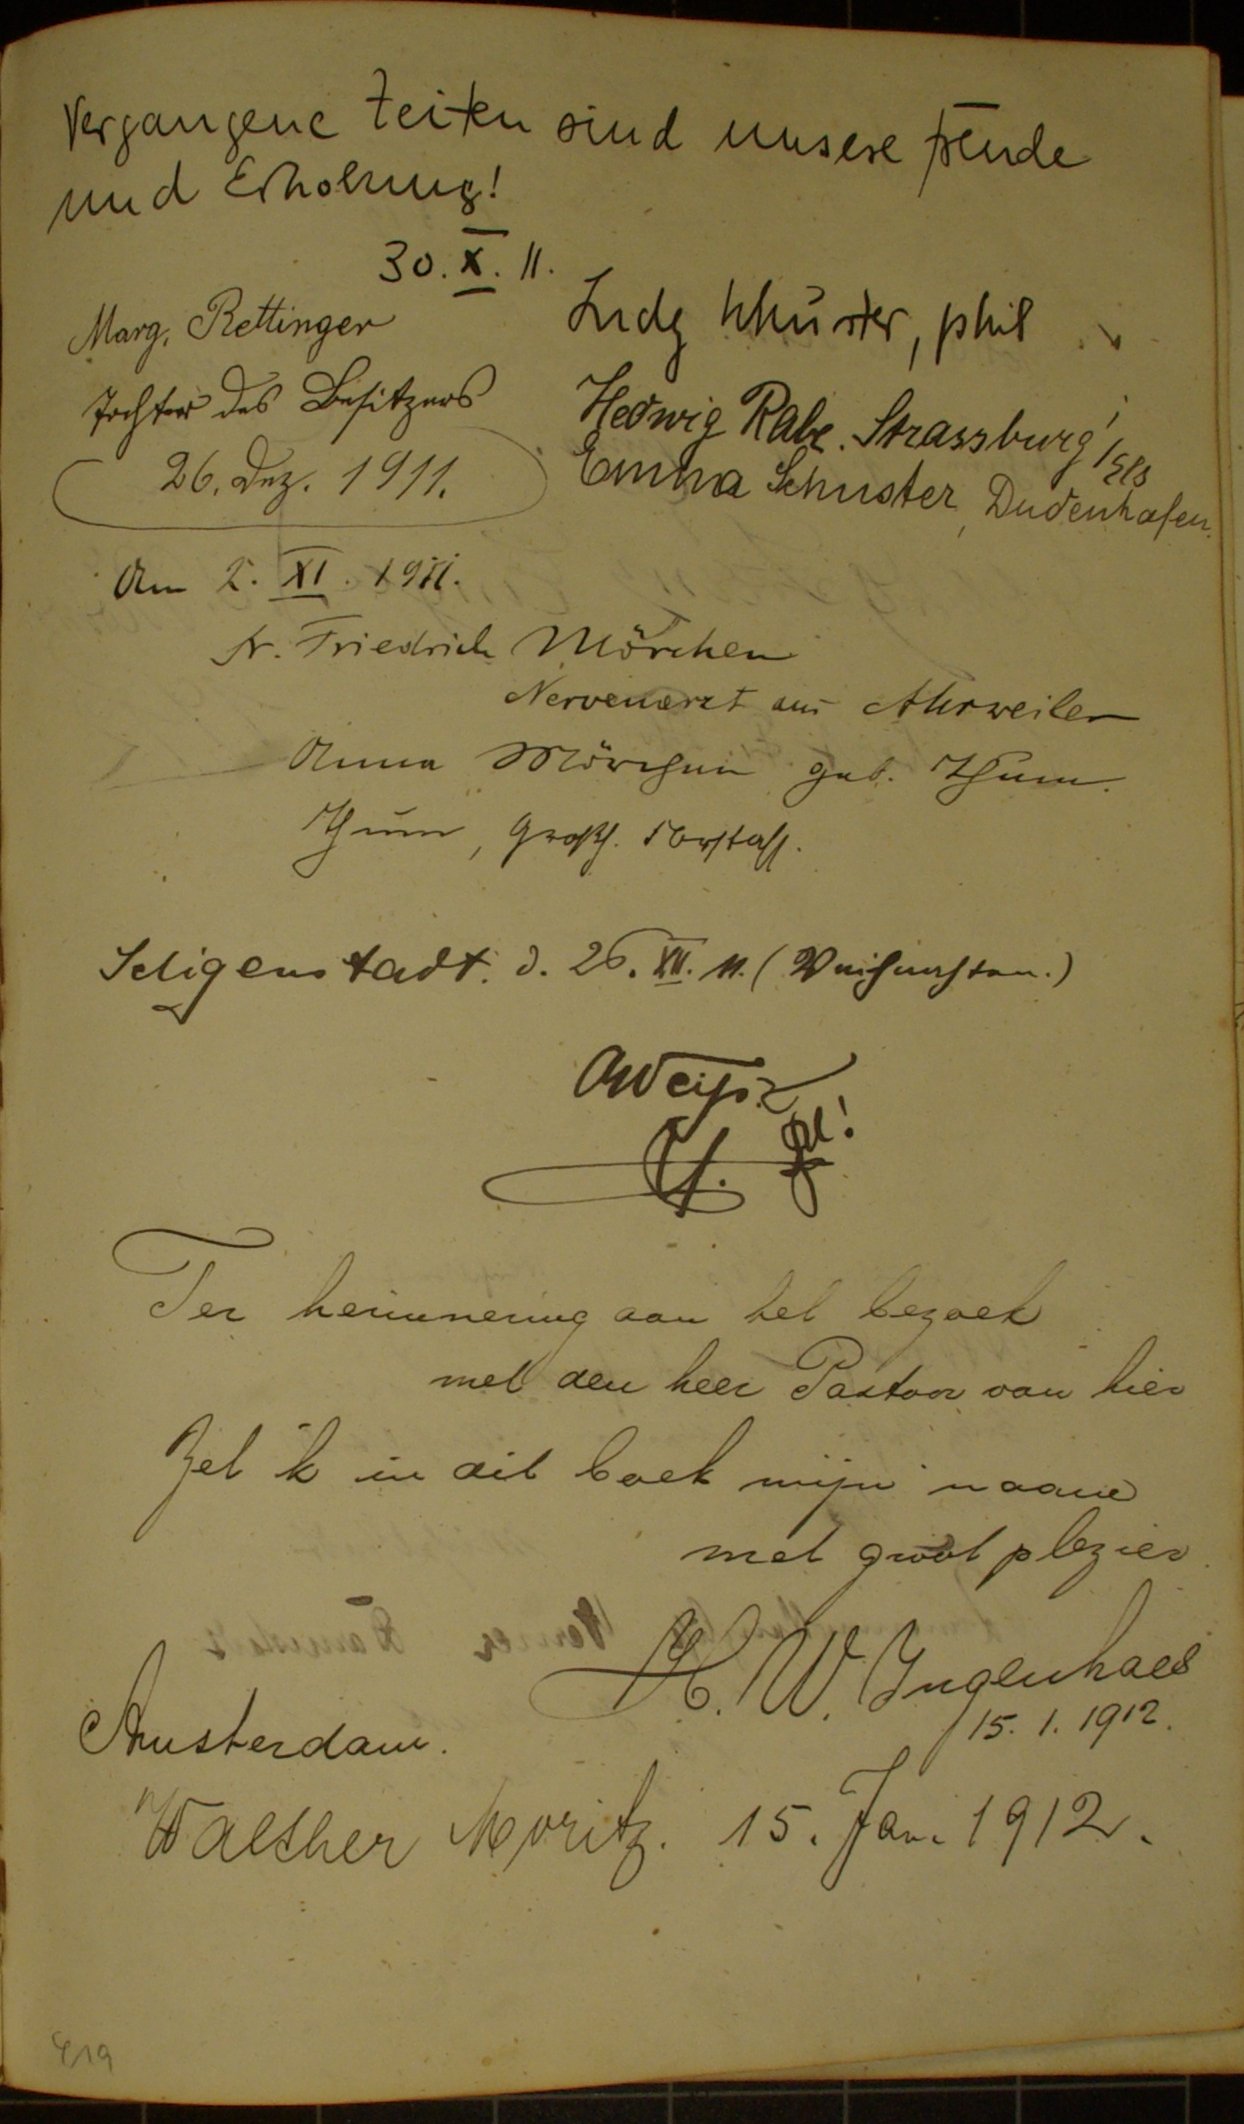 Vergangene Zeiten sind unsere Freude
und Erholung!
30. X. 11.
Ludg Schuster, phil
Marg. Rettinger
Tochter des Besitzers
26. Dez. 1911.
Hedwig Rabe. Strassburg i/Els
Emma Schuster, Dudenhofen.
Am 2. XI. 1911.
Dr. Friedrich Mörchen
Nervenarzt aus Ahrweiler
Anna Mörchen geb. Thum.
Thum, Großh.
Seligenstadt. d. 26. XII. 11. (Weihnachten.)
Ter herinnering aan het bezoek
met den heer Pastoor van hier
Zet ik in dit boek mijn naam
met groot plezier
H. W. Ingenhaes
15. 1. 1912.
Amsterdam.
Walther Moritz. 15. Jan. 1912.